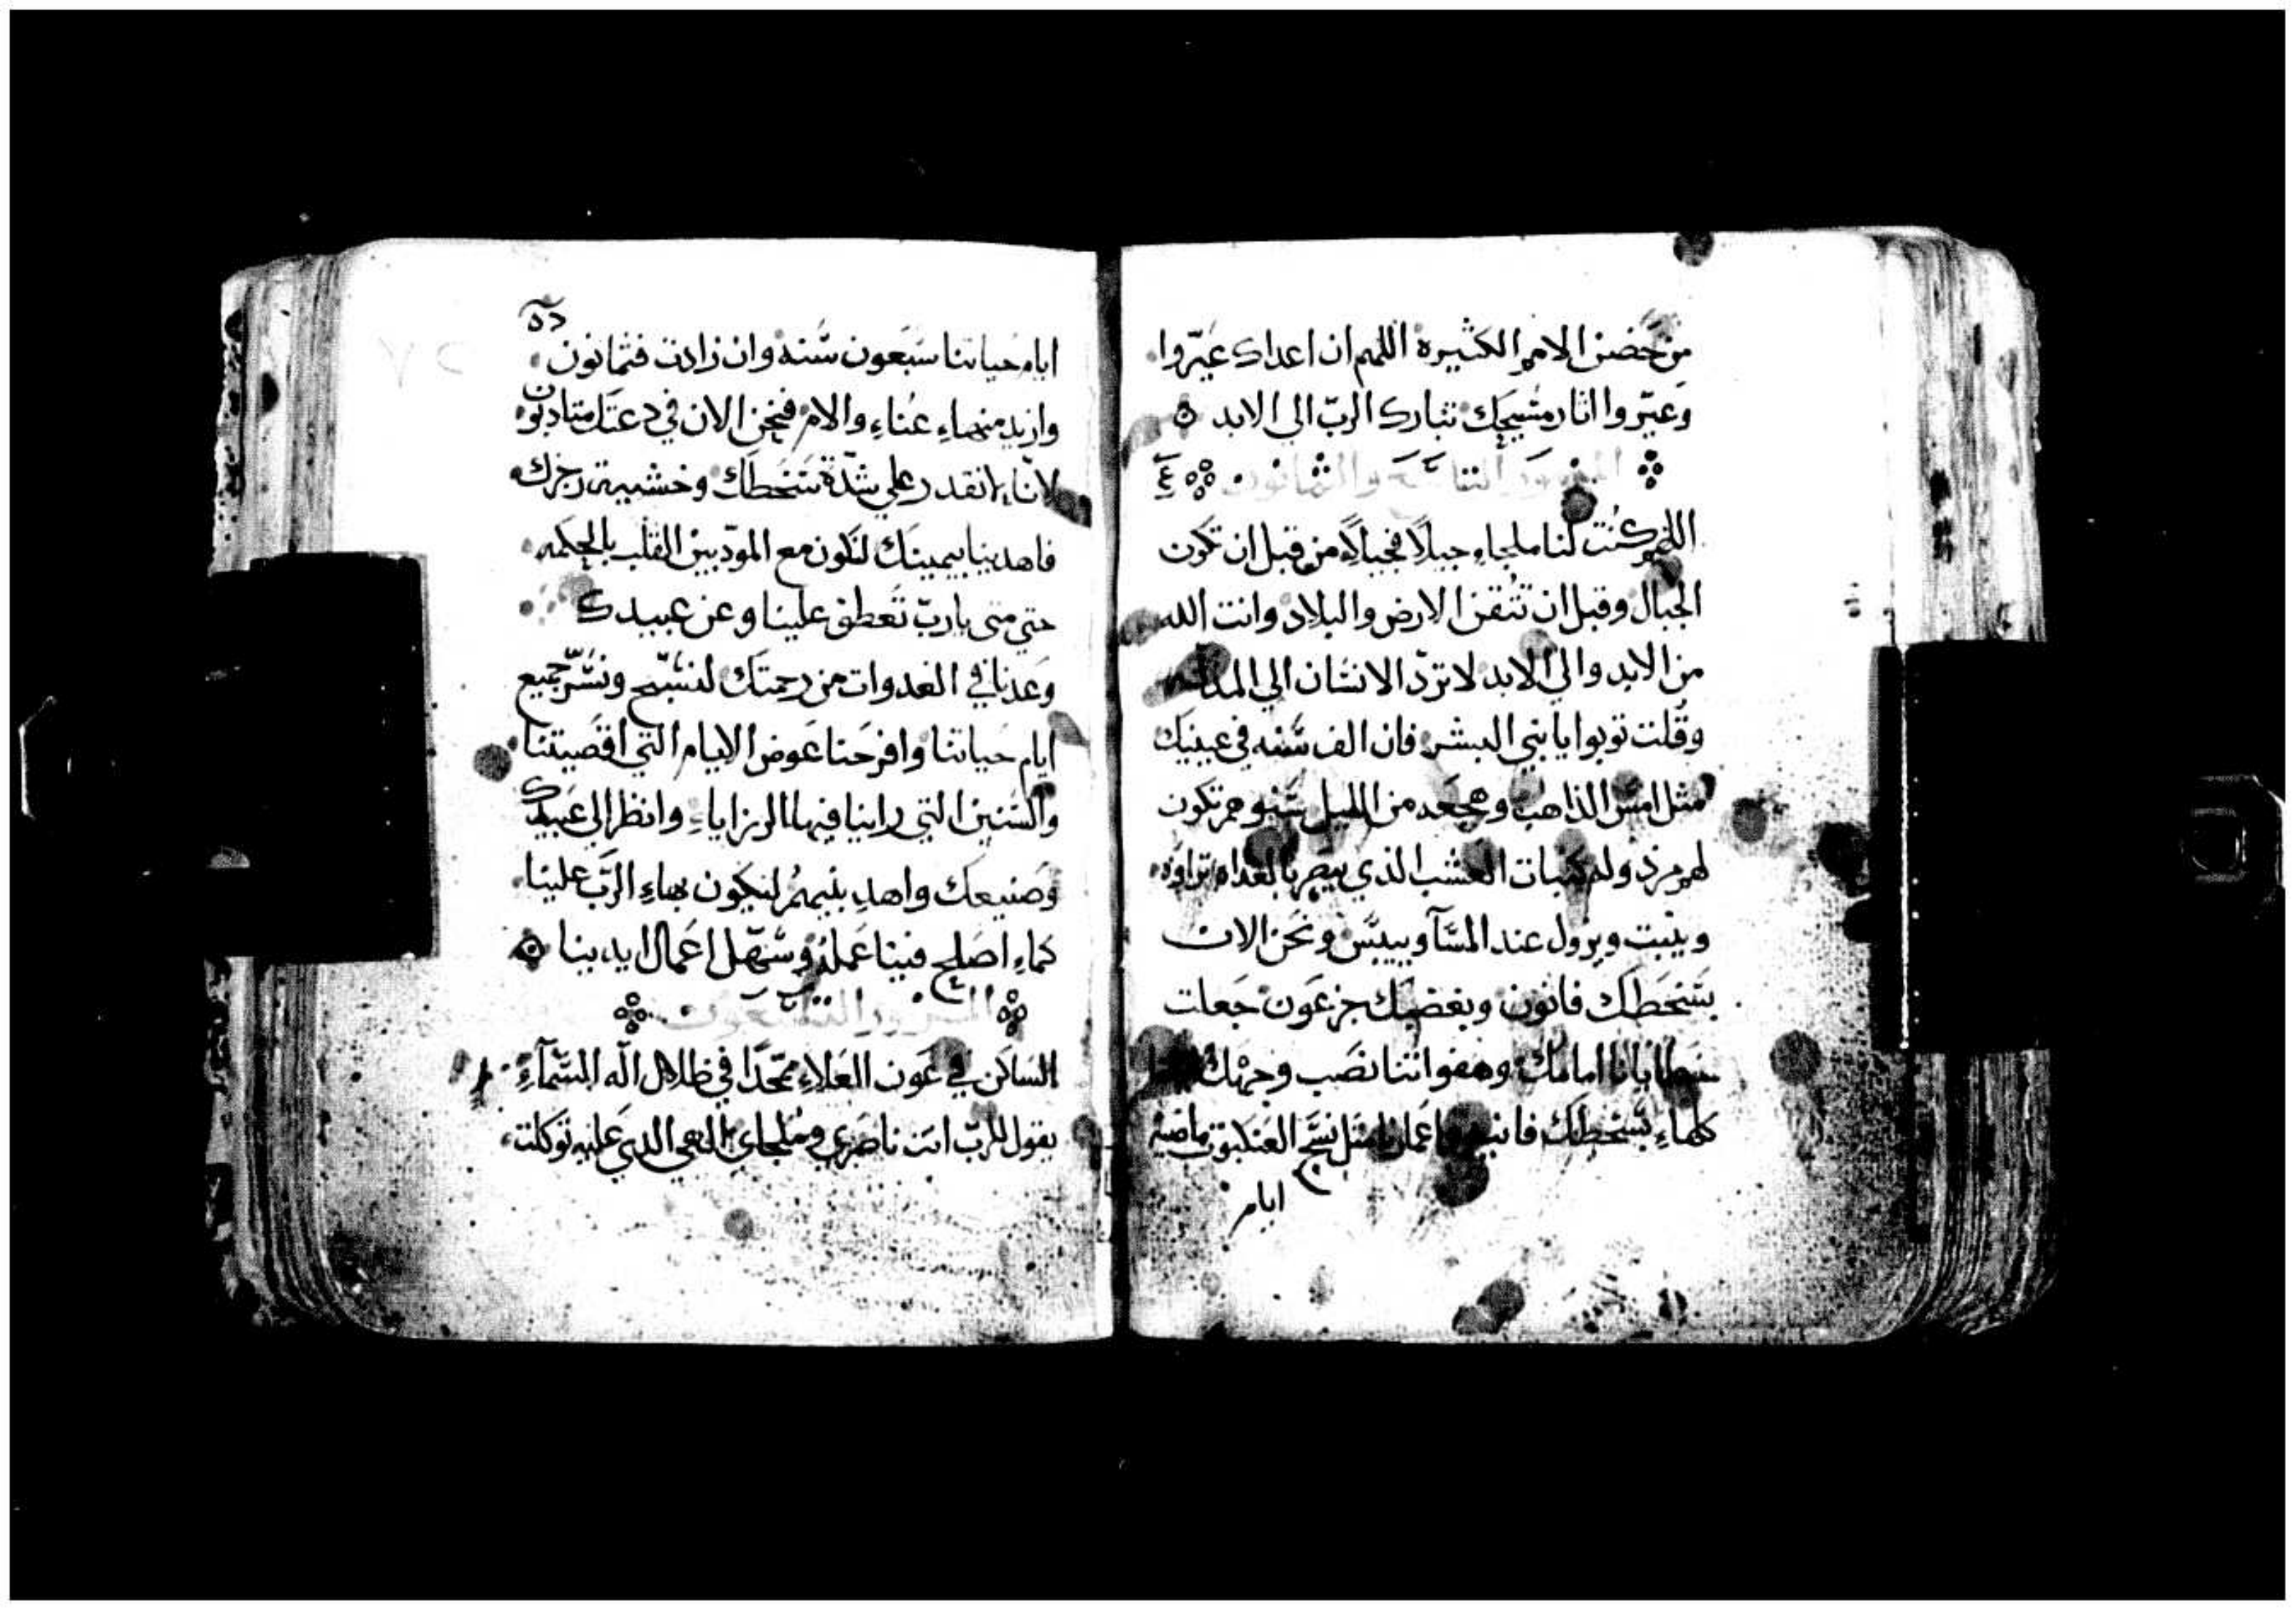 من حضن الامم الكثيرة اللهم ان اعداك عيّروا
وعيّروا اثار مسيحك تبارك الربّ الي الابد
المزمور التاسع والثمانون
اللهم كنت لنا ملجاء جيلاً فجيلاً من قبل ان تكون
الجبال وقبل ان تتقن الارض والبلاد وانت الله
من الابد والي الابد لا تردّ الانسان الي المذلّه
وقلت توبوا يا بني البشر فان الف سنه في عينيك
مثل امس الذاهب وهجعه من الليل سنوهم تكون
لهم مرذوله كنبات العشب الذي يبصر بالغداه تراوه
وينبت ويزول عند المسآ وييبس ونحن الان
بسخطك فانون وبغضبك جزعون جعلت
خطايانا امامك وهفواتنا نصب وجهك
كلها بسخطك اعمارنا مثل نسج العنكبوت ماضيه
ايام
ايام حياتنا سبعون سنه وان زادت فثمانون
وازيد منهاء عناء والام فنحن الان في دعتك متادبون
لانّا لا نقدر علي شدّة سخطك وخشية رجزك
فاهدينا بيمينك لنكون مع المودّبين القلب بالحكمه
حتي متي يا ربّ تعطف علينا وعن عبيدك
وعدنا في الغدوات من رحمتك لنسبّح ونسّر جميع
ايام حياتنا وافرحنا عوض الايام التي اقصيتنا
والسنين التي راينا فيها الرزاياء وانظر الي عبيدك
وصنيعك واهد بنيهم ليكون بهاء الربّ علينا
كماء اصلح فينا عمله وسهّل اعمال ايدينا
المزمور التسعون
الساكن في عون العلاء متحدًا في ظلال اله السّمآء
يقول للربّ انت ناصري وملجاي الهي الدي عليه توكلت